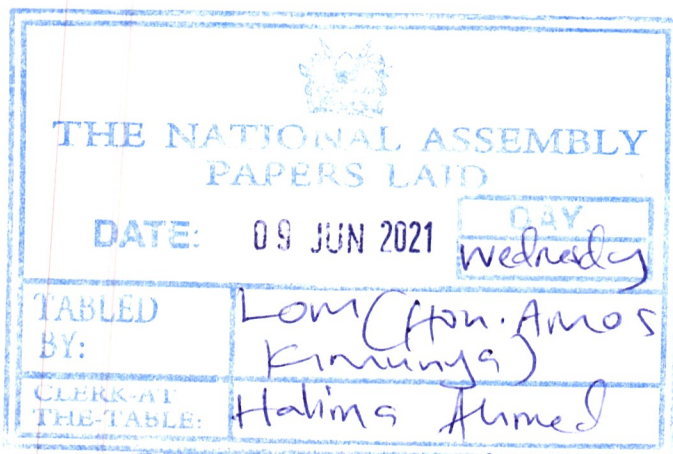 THE NATIONAL ASSEMBLY
PAPERS LAID
DATE: 09 JUN 2021
DAY
Wednesday
TABLED BY:
LOM (Hon. Amos Kimunya)
CLERK-AT THE-TABLE:
Halima Ahmed